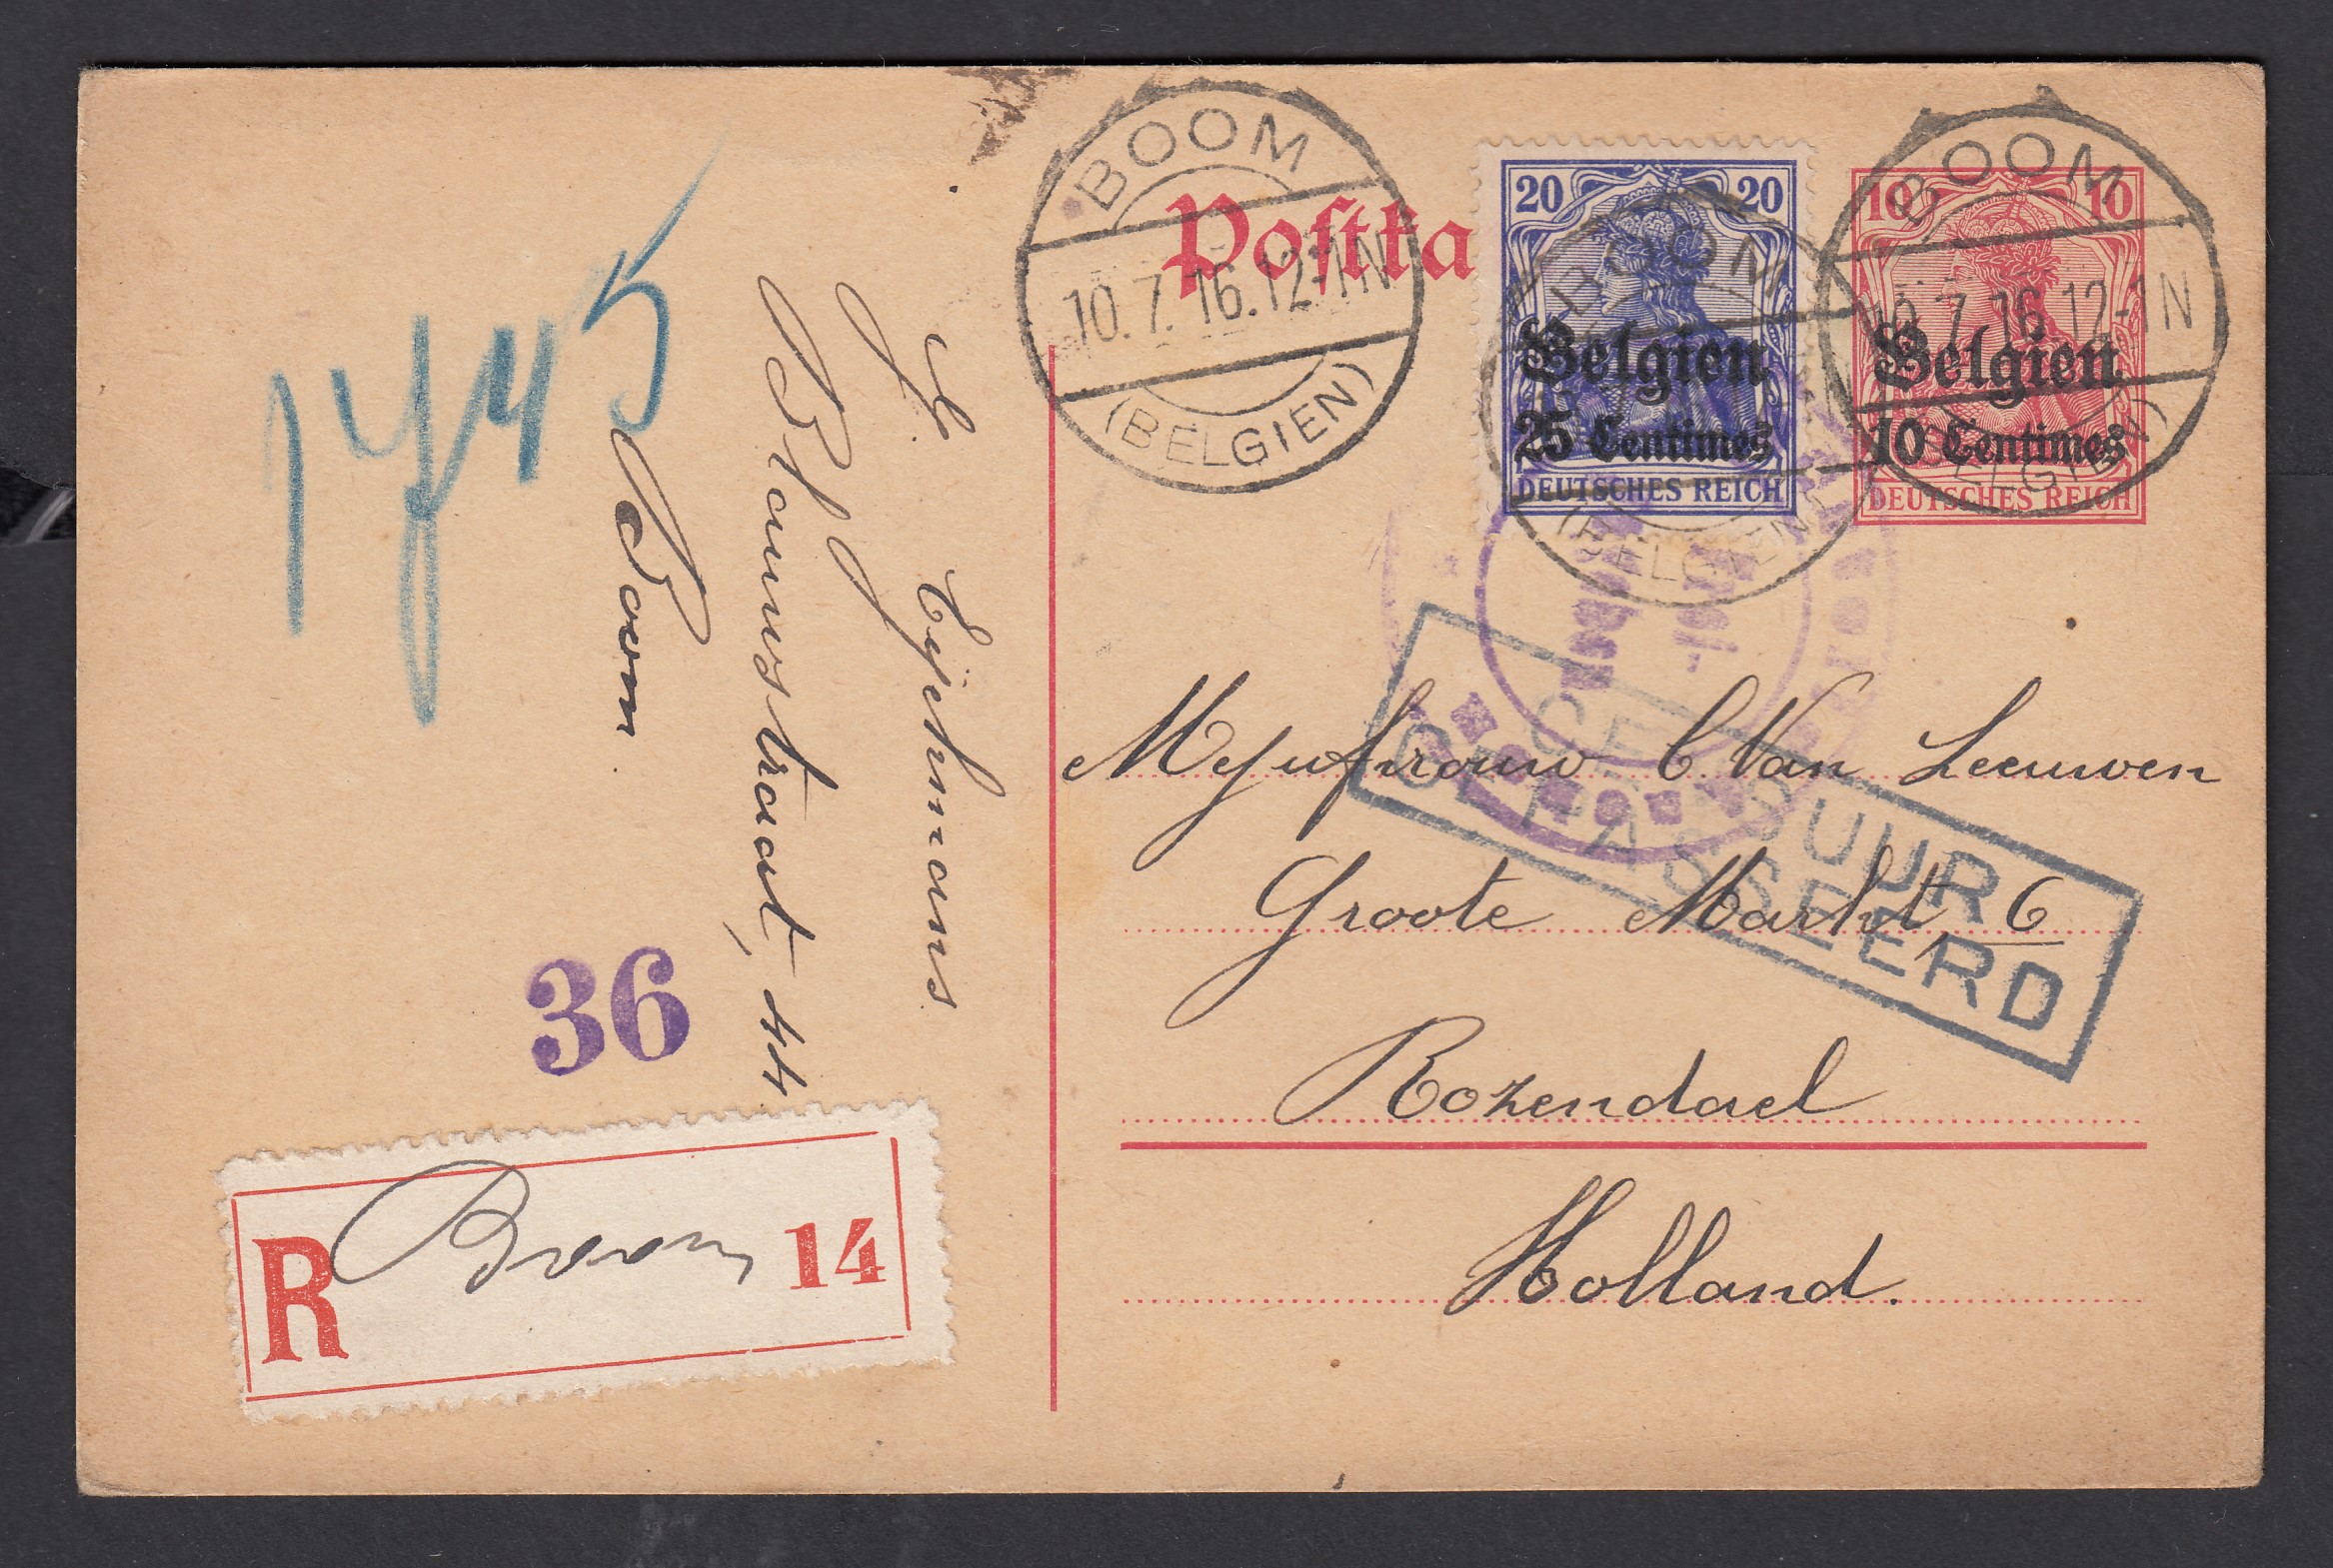 BOOM
10.7.16.12-1N
(BELGIEN)
Postka
20 20
Belgien
25 Centimes
DEUTSCHES REICH
BOOM
(BELGIEN)
10 10
Belgien
10 Centimes
DEUTSCHES REICH
BOOM
10.7.16.12-1N
(BELGIEN)
1745
Eyckmans
Blauwstraat, 44
Boom
36
R Boom 14
CENSUUR
GEPASSEERD
Mejufvrouw C. Van Leeuwen
Groote Markt, 6
Rozendael
Holland.